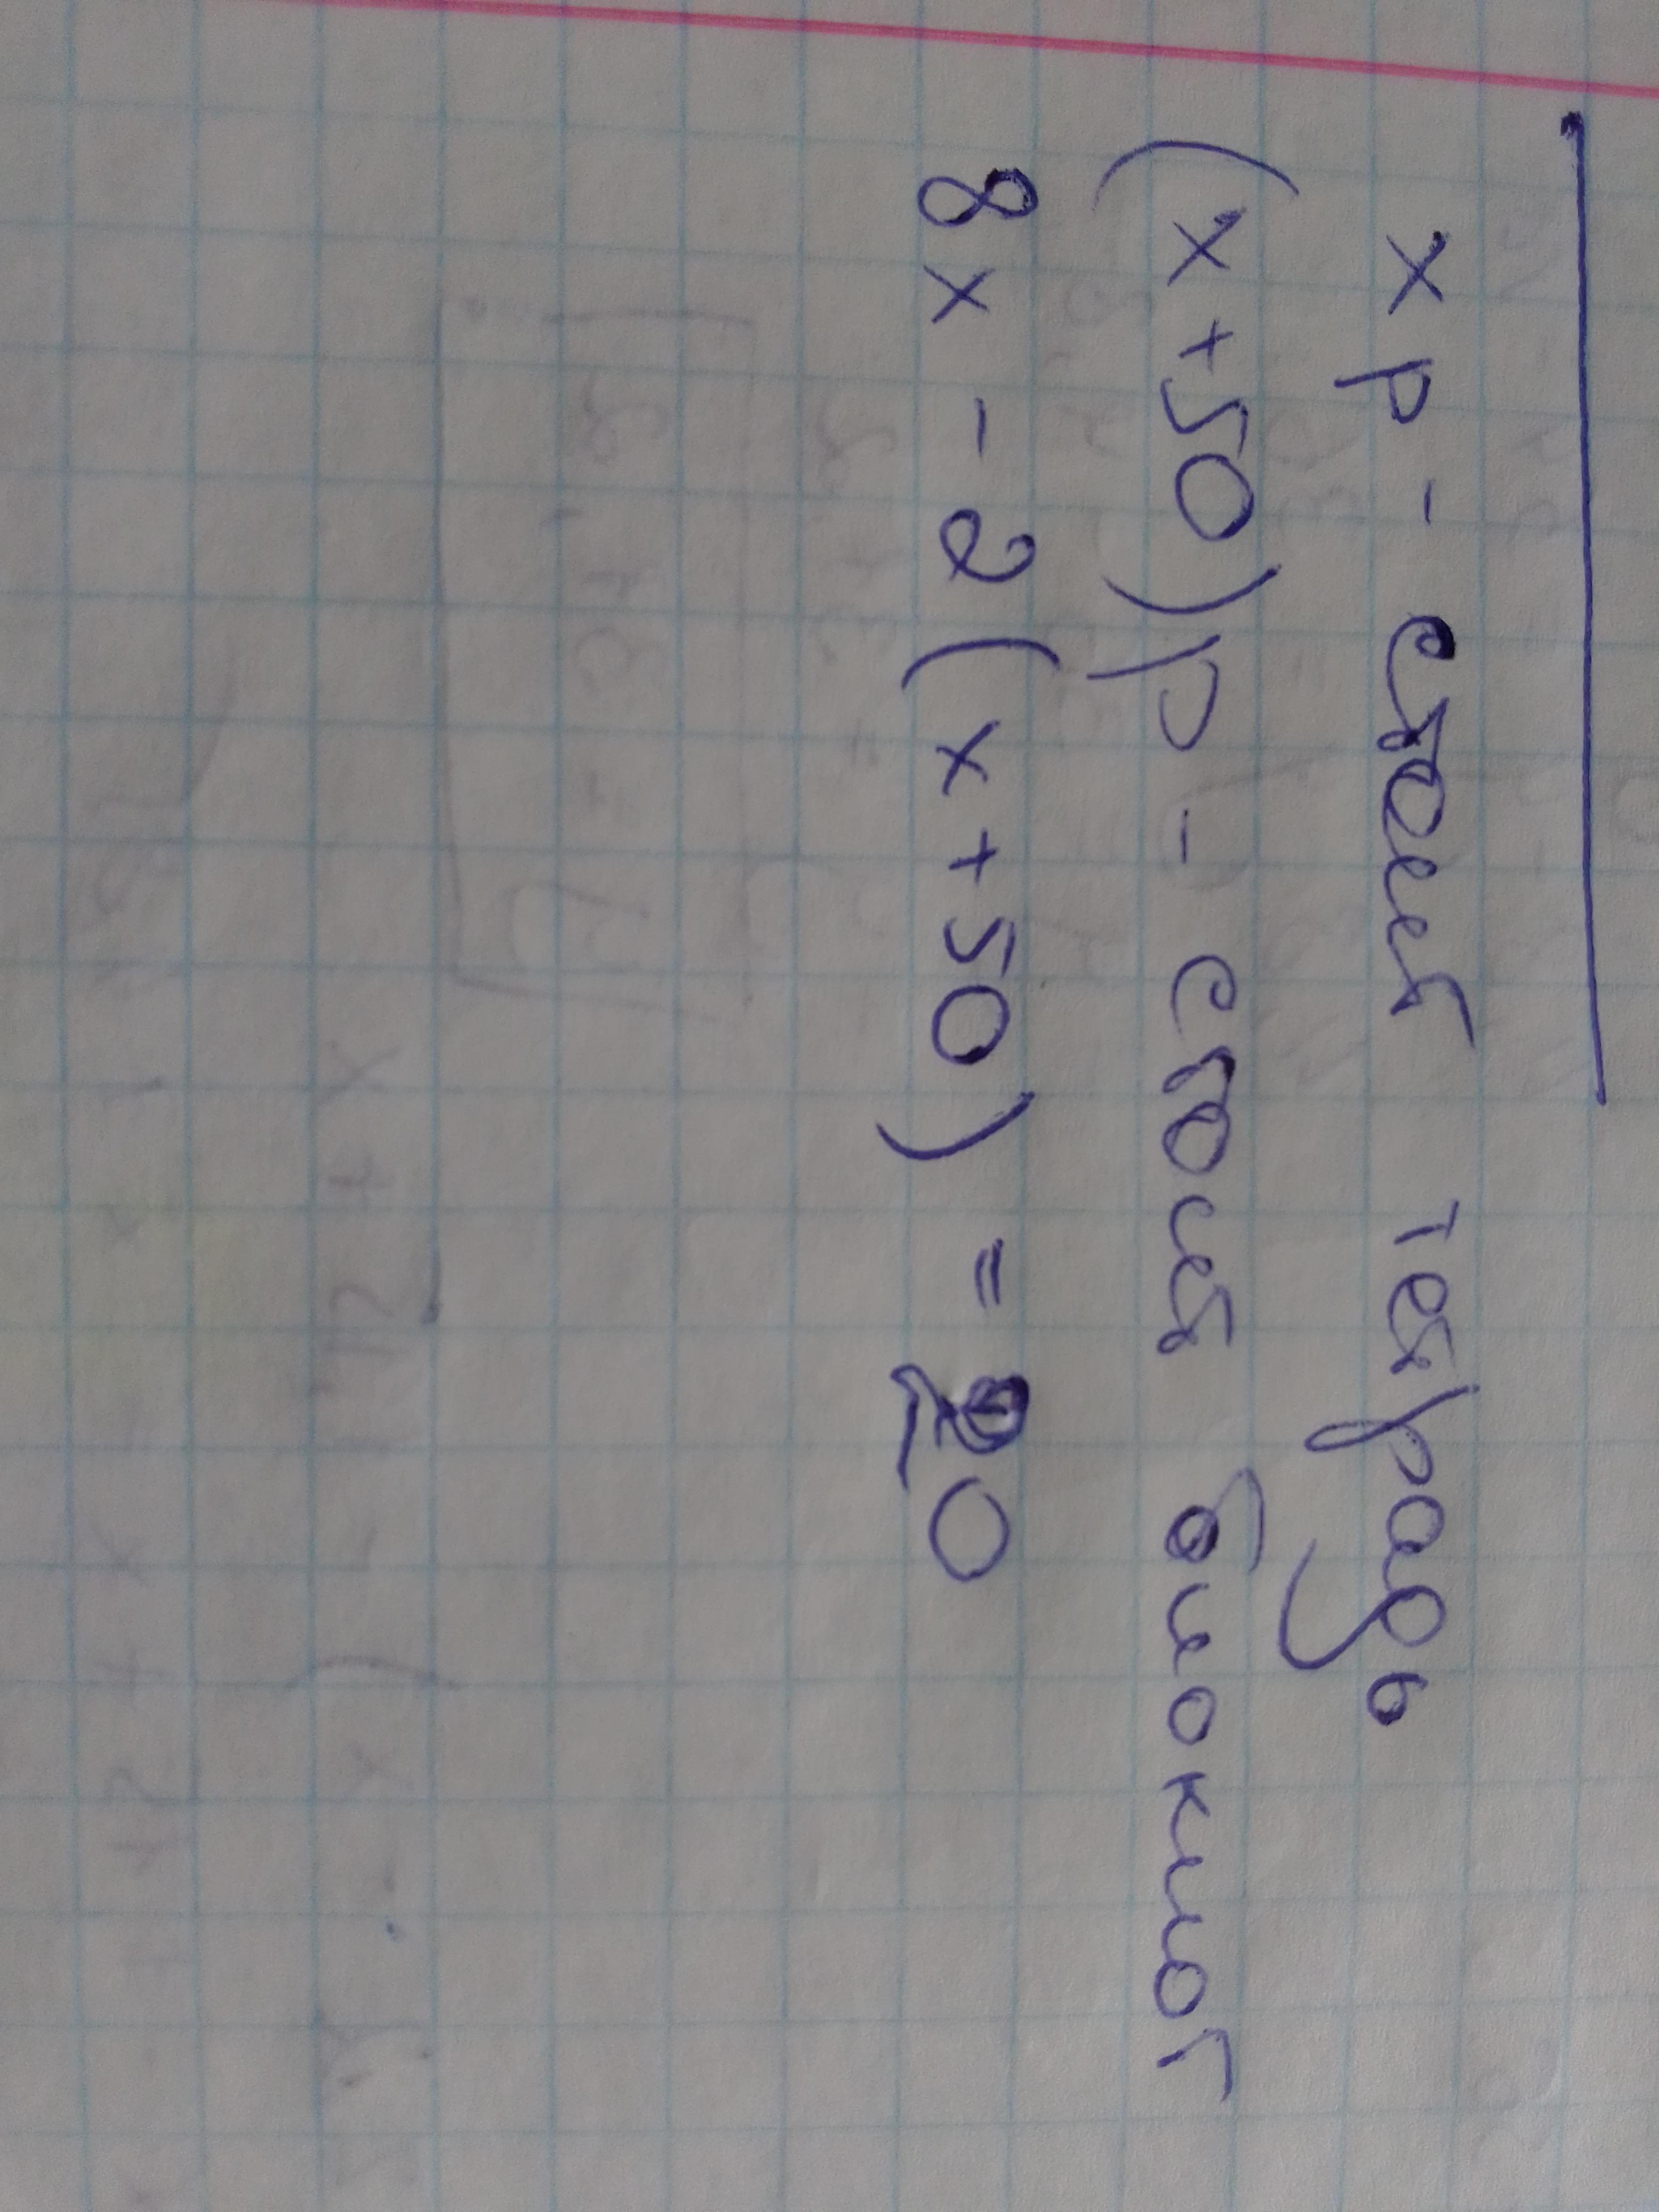 x р - стоит тетрадь
(x+50)р - стоит блокнот
8x - 2(x+50) = 20